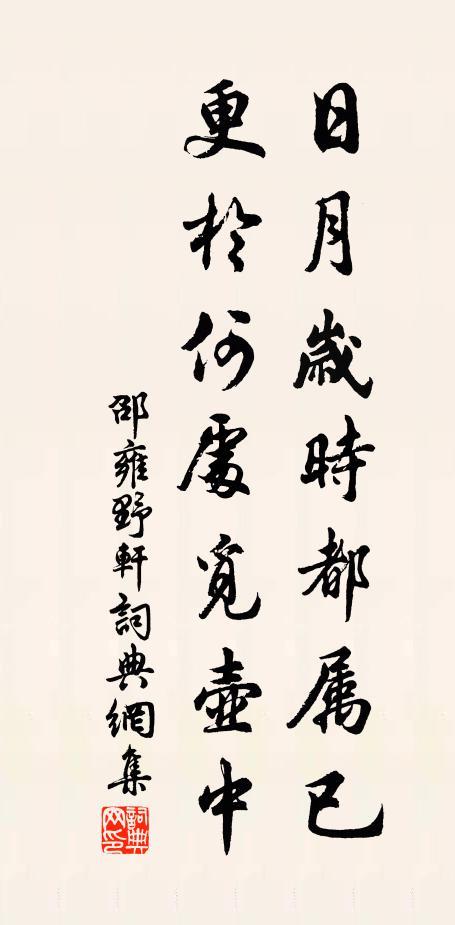 日月歲時都属已
更於何處覓壺中
邵雍野軒詞典網集
詞典网印